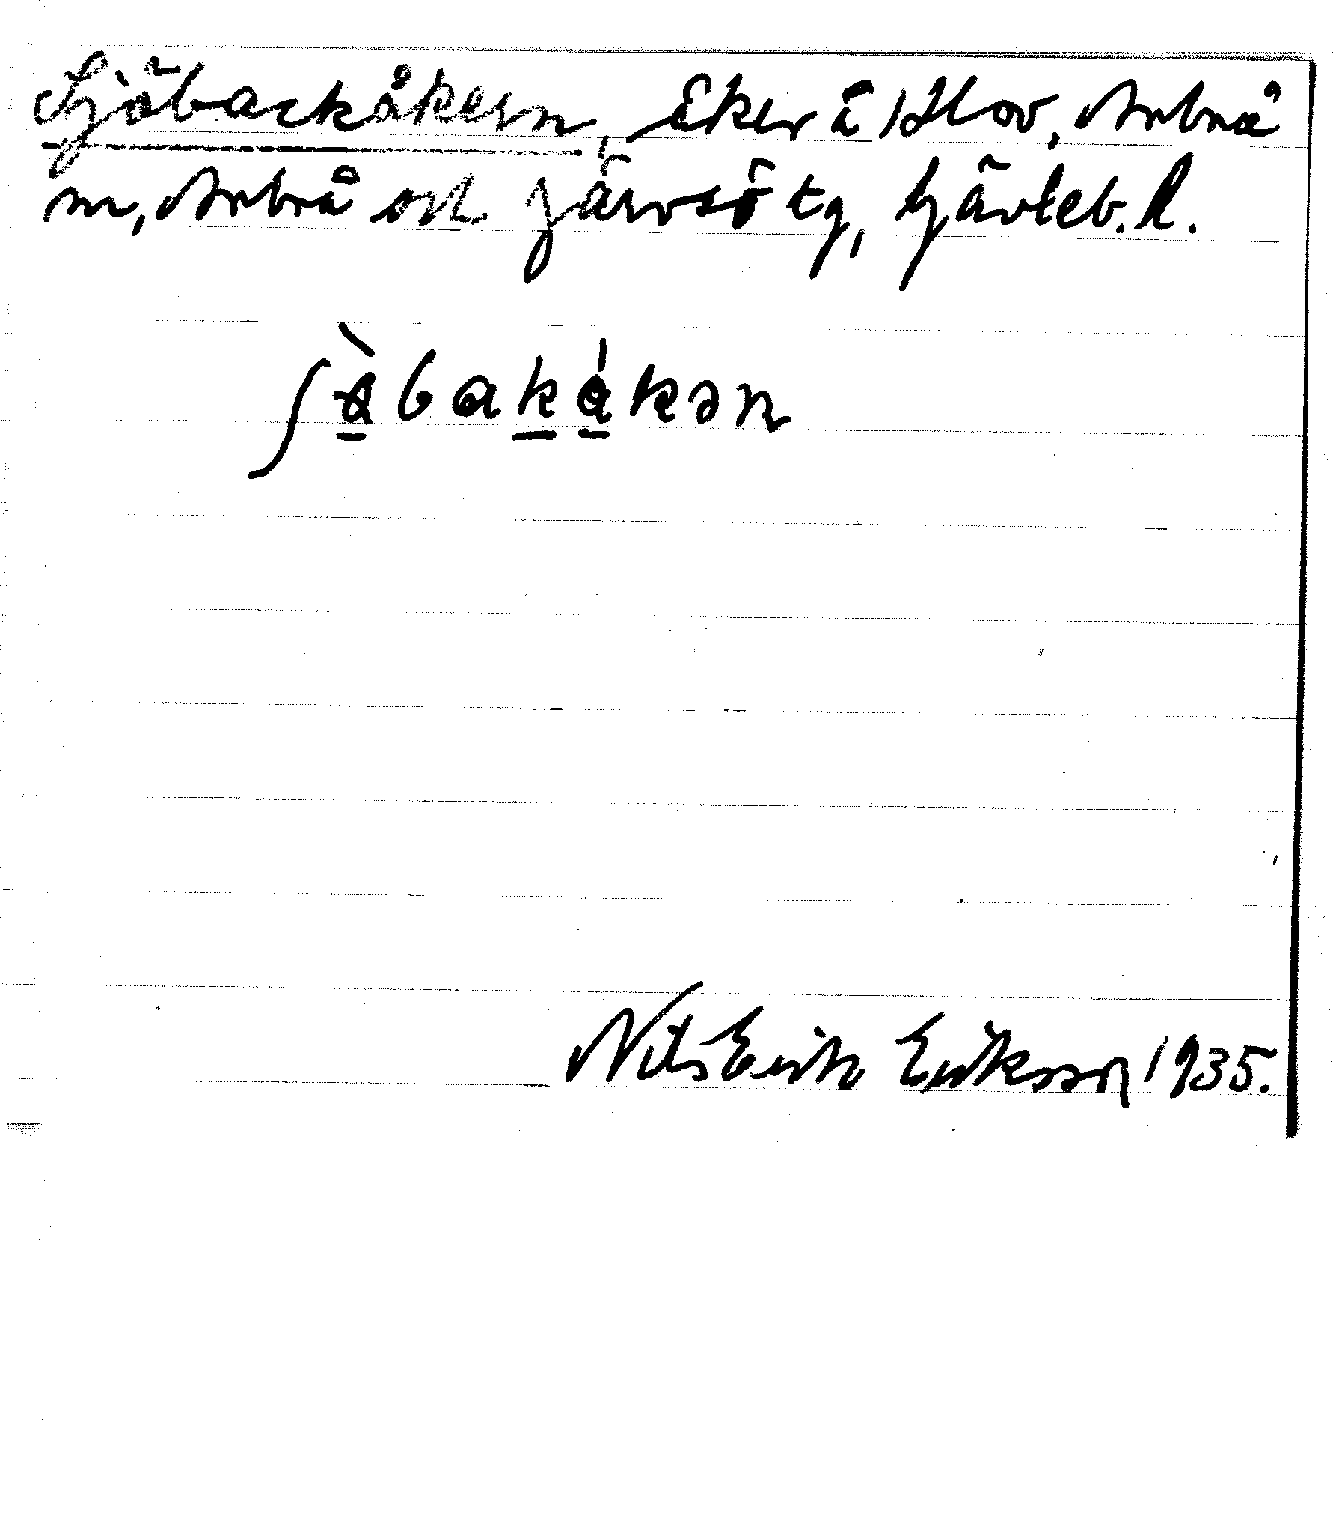 Sjöbackåkern, åker i Hov, Arbrå
sn, Arbrå och Järvsö tg, Gävleb. l.
Nils Erik Eriksson 1935.